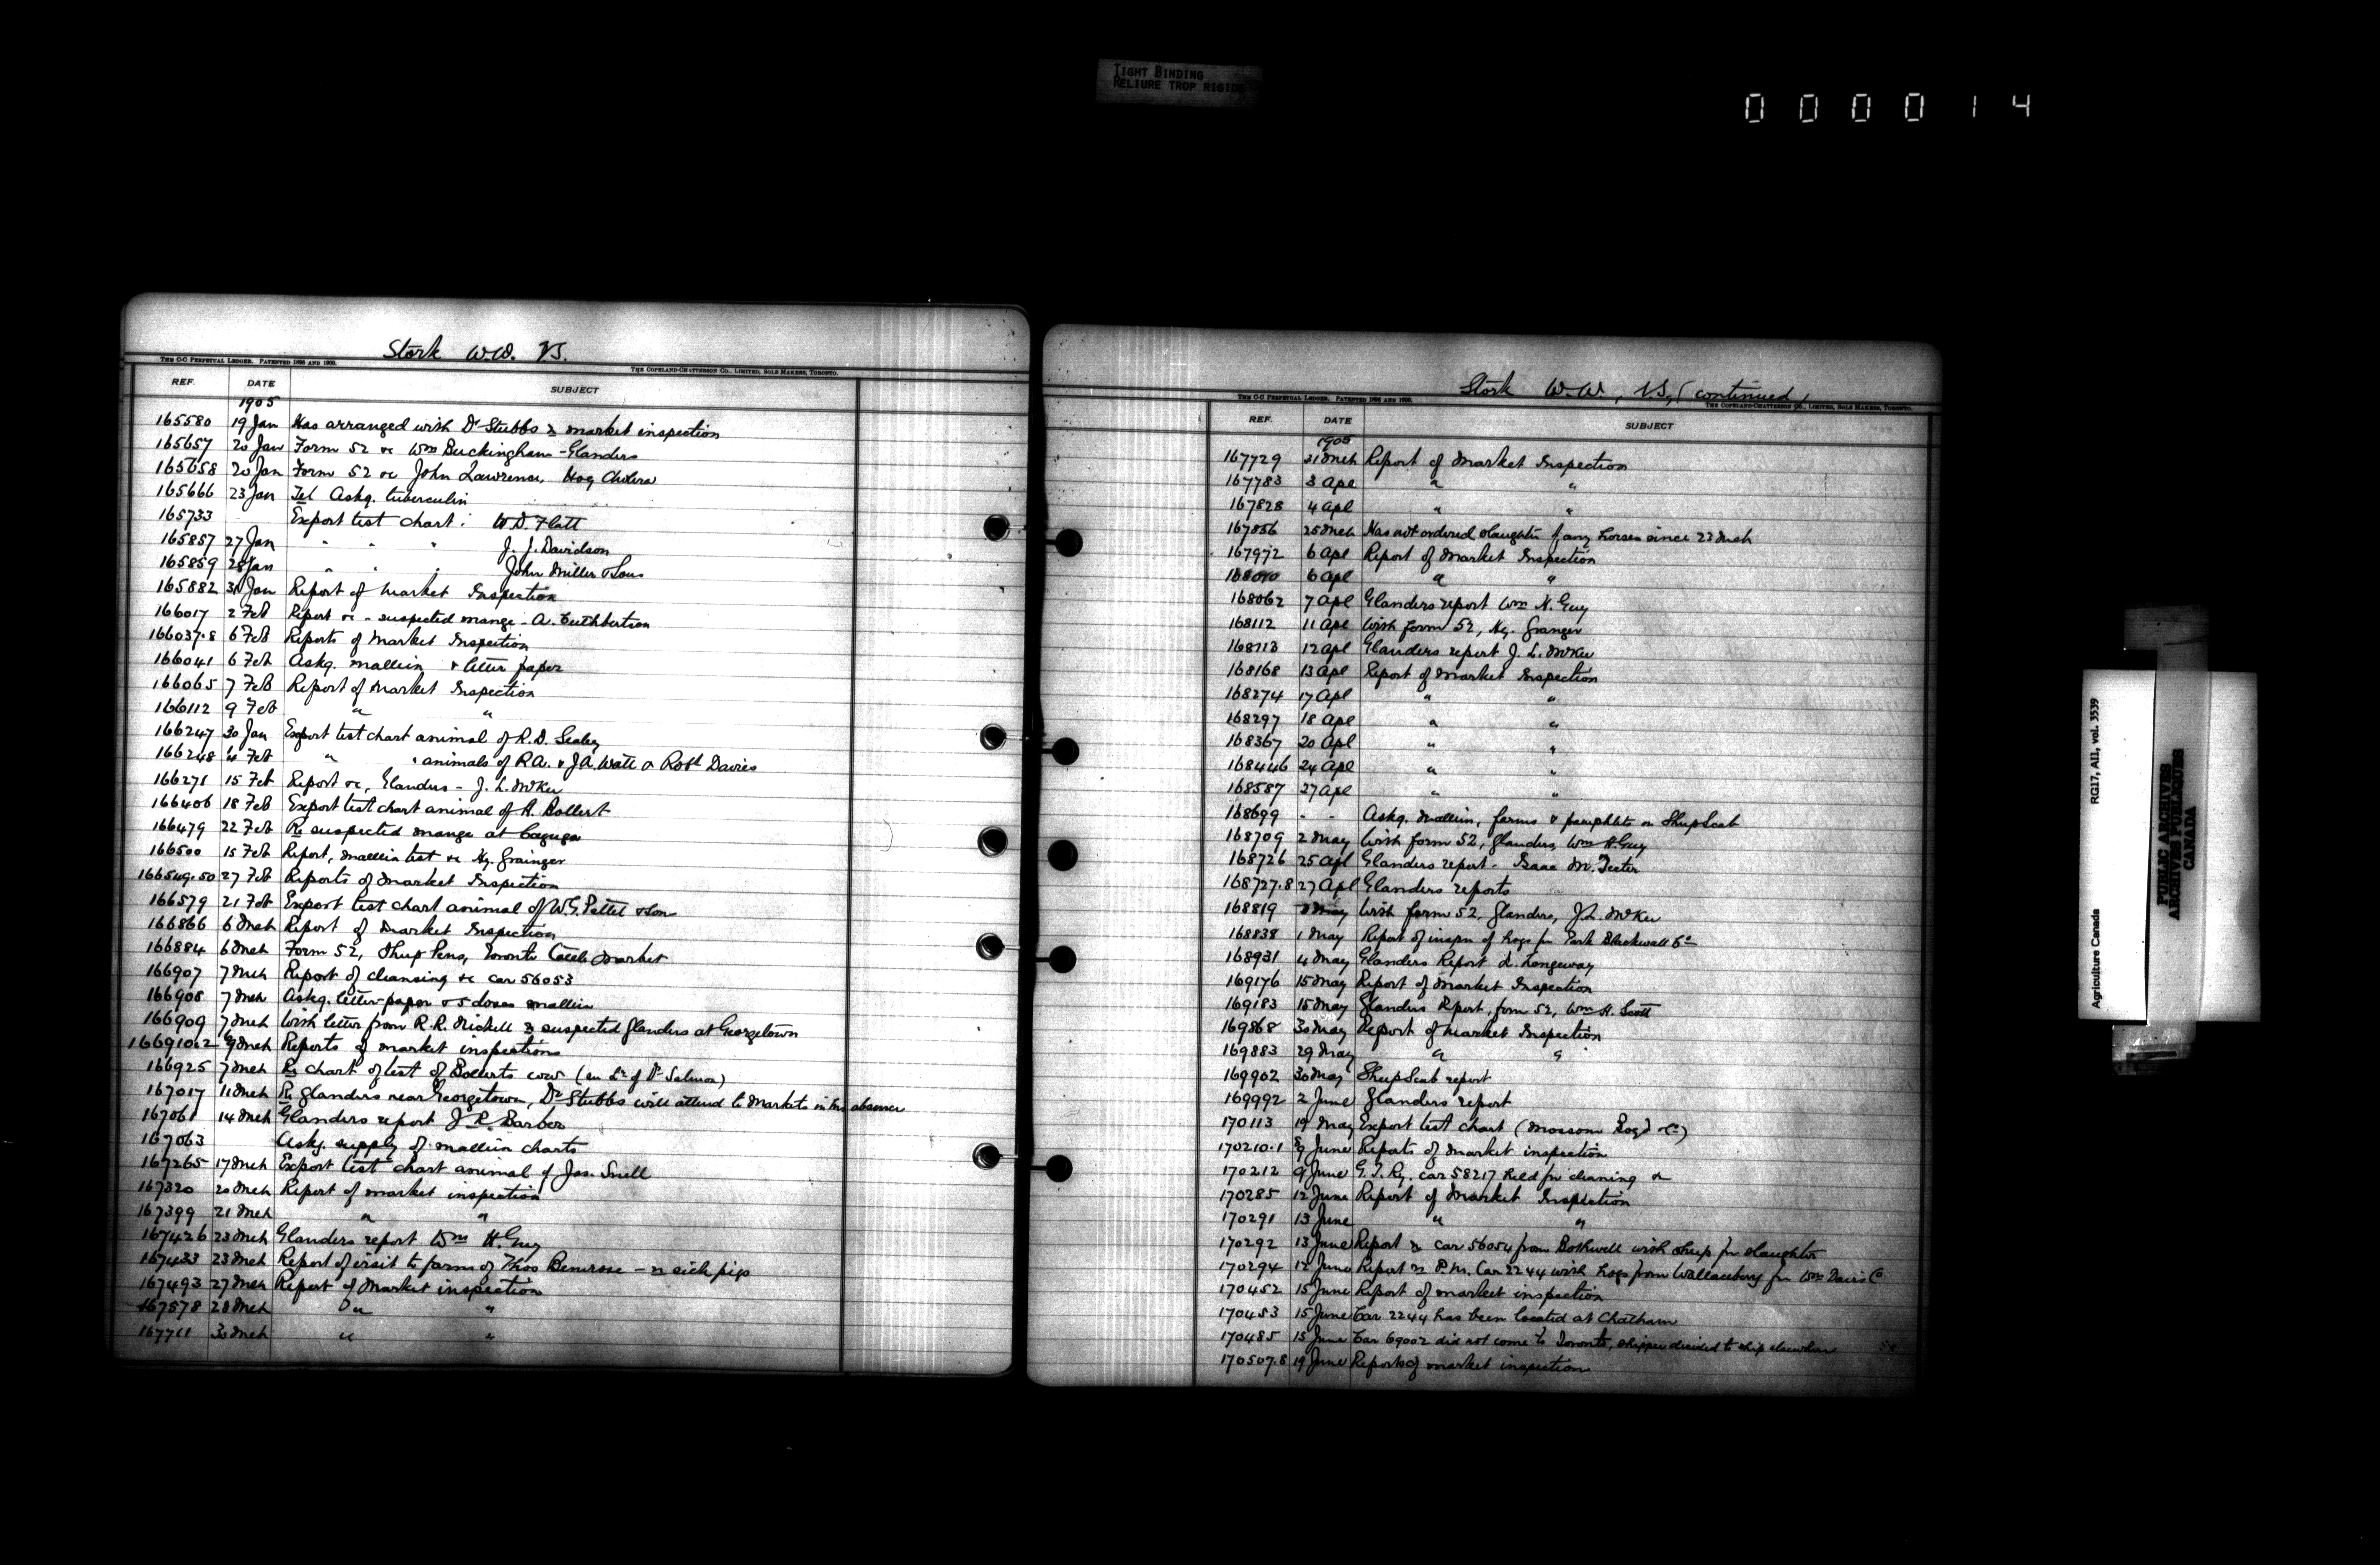 TIGHT BINDING
RELIURE TROP RIGIDE
000014
Stork W.W. V.S.
THE C-C PERPETUAL LEDGER. PATENTED 1896 AND 1900.
THE COPELAND-CHATTERSON CO., LIMITED, SOLE MAKERS, TORONTO.
REF. DATE SUBJECT
1905
165580 19 Jan Has arranged with Dr Stubbs re market inspection
165657 20 Jan Form 52 re Wm Buckingham - Glanders
165658 20 Jan Form 52 re John Lawrence, Hog Cholera
165666 23 Jan Tel Askg. tuberculin
165733 Export test chart: W.D. Flatt
165857 27 Jan " " " J. J. Davidson
165859 28 Jan " " " John Miller & Sons
165882 31 Jan Report of Market Inspection
166017 2 Feb Report re - suspected mange - A. Cuthbertson
166037.8 6 Feb Reports of Market Inspection
166041 6 Feb Askg. mallein & letter paper
166065 7 Feb Report of Market Inspection
166112 9 Feb " "
166247 30 Jan Export test chart animal of R.D.
166248 Feb " " animals of R.A. & J.A. Watt & Robt Davies
166271 15 Feb Report re, Glanders - J. L. McKee
166406 18 Feb Export test chart animal of H. Bollert
166479 22 Feb Re suspected mange at Cayuga
166500 15 Feb Report, mallein test re Hy. Grainger
166549.50 27 Feb Reports of Market Inspection
166579 21 Feb Export test chart animal of W.G. Pettit & Son
166866 6 Mch Report of Market Inspection
166884 6 Mch Form 52, Sheep Pens, Toronto Cattle Market
166907 7 Mch Report of cleansing re car 56053
166908 7 Mch Askg. letter-paper & 5 doses mallein
166909 7 Mch With letter from R.R. Nickell re suspected glanders at Georgetown
166910&2 9 Mch Reports of market inspections
166925 7 Mch Re chart of test of Bollerts cow (en Lr of Dr Salmon)
167017 11 Mch Re glanders near Georgetown, Dr Stubbs will attend to Markets in his absence
167061 14 Mch Glanders report J. R. Barber
167063 Askg. supply of mallein charts
167265 17 Mch Export test chart animal of Jas. Snell
167320 20 Mch Report of market inspection
167399 21 Mch " "
167426 23 Mch Glanders report Wm H. Guy
167433 23 Mch Report of visit to farm of Thos Benerose - re sick pigs
167493 27 Mch Report of Market inspection
167578 28 Mch " "
167711 30 Mch " "
Stork W.W., V.S, (continued)
THE C-C PERPETUAL LEDGER. PATENTED 1896 AND 1900.
THE COPELAND-CHATTERSON CO., LIMITED, SOLE MAKERS, TORONTO.
REF. DATE SUBJECT
1905
167729 31 Mch Report of Market Inspection
167783 3 Apl " "
167828 4 Apl " "
167856 25 Mch Has not ordered slaughter of any horses since 23 Mch
167972 6 Apl Report of Market Inspection
168010 6 Apl " "
168062 7 Apl Glanders report Wm H. Guy
168112 11 Apl With form 52, Hy. Granger
168113 12 Apl Glanders report J. L. McKee
168168 13 Apl Report of Market Inspection
168274 17 Apl " "
168297 18 Apl " "
168367 20 Apl " "
168446 24 Apl " "
168587 27 Apl " "
168699 - - Askg. Mallein, forms & pamphlets on Sheep Scab
168709 2 May With form 52, glanders, Wm H. Guy
168726 25 Apl Glanders report - Isaac M. Teeter
168727.8 27 Apl Glanders reports
168819 May With form 52, glanders, J.L. McKee
168838 1 May Report of inspn of hogs for Park Blackwell Co
168931 4 May Glanders Report L. Longeway
169176 15 May Report of Market Inspection
169183 15 May Glanders Report, form 52, Wm H. Scott
169868 30 May Report of Market Inspection
169883 29 May " "
169902 30 May Sheep Scab report
169992 2 June Glanders report
170113 19 May Export test chart (Mossom Boyd & Co)
170210.1 9 June Reports of Market inspection
170212 9 June G.T. Ry. car 58217 held for cleaning &c
170285 12 June Report of Market Inspection
170291 13 June " "
170292 13 June Report re car 56054 from Bothwell with sheep for slaughter
170294 12 June Report re P.M. Car 2244 with hogs from Wallaceburg for Wm Davis Co
170452 15 June Report of market inspection
170453 15 June Car 2244 has been located at Chatham
170485 15 June Car 69002 did not come to Toronto, shipper decided to ship elsewhere
170507.8 19 June Reports of market inspection
Agriculture Canada RG17, AII, vol. 3539
PUBLIC ARCHIVES
ARCHIVES PUBLIQUES
CANADA